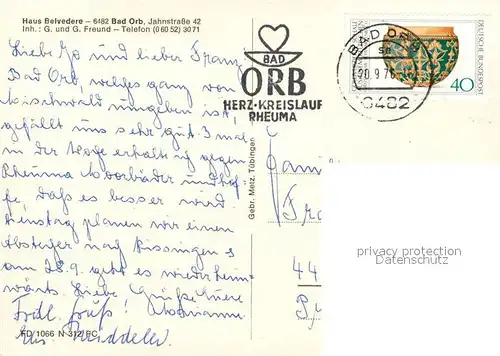 Haus Belvedere – 6482 Bad Orb, Jahnstraße 42
Inh.: G. und G. Freund – Telefon (0 60 52) 3071
Liebe Jo und lieber Franz
Bad Orb, welches ganz von
Mischwald umgeben ist,
gefällt uns sehr gut. 3 mal
in der Woche erhalte ich gegen
Rheuma Moorbäder und hoffe
, daß es besser wird.
Dienstag planen wir einen
Abstecher nach Kissingen
am 28.9. geht es wieder heim-
wärts. Liebe Grüße
Frdl. Gruß!
FD/1066 N 312/FC
Gebr. Metz, Tübingen
BAD
ORB
HERZ·KREISLAUF
RHEUMA
BAD ORB
20.9.76
6482
DEUTSCHE BUNDESPOST
40
Fra
44
privacy protection
Datenschutz